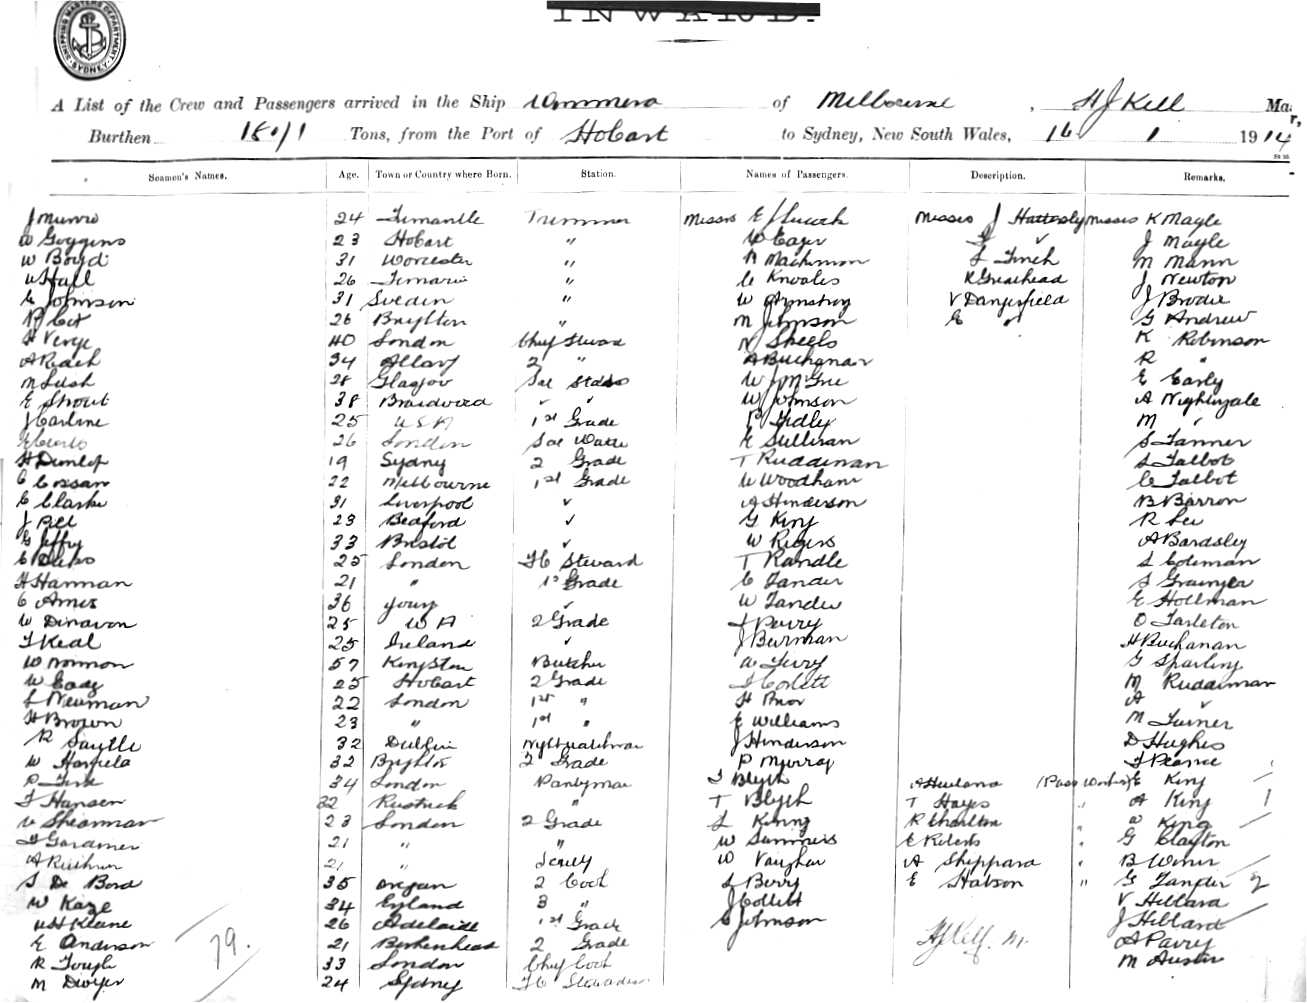 INWARD.
SHIPPING MASTERS DEPARTMENT SYDNEY
A List of the Crew and Passengers arrived in the Ship Wimmera of Melbourne, H J Kell Mas
Burthen 1871 Tons, from the Port of Hobart to Sydney, New South Wales, 16 1 1914
Seamen's Names. Age. Town or Country where Born. Station. Names of Passengers. Description. Remarks.
J Munro 24 Fremantle Trimmer Messrs E Messrs J Hattersly Messrs K Mayle
W Goggins 23 Hobart " W Eager J Mayle
W Boyd 31 Worcester " Mackinnon L Finch M Mann
W Hall 26 " C Knowles R Greathead J Newton
C Johnson 31 Sweden " W Armstrong V Dangerfield J Brodie
26 Brighton " M Johnson E " G Andrew
H Verge 40 London Chief Steward N Sheels K Robinson
A Reach 34 2 " A Buchanan R "
M Lush 28 Glasgow W J E Early
E Shout 38 Braidwood " " W Johnson A Nightingale
J Carline 25 USA 1st Grade Gidley M "
26 London E Sullivan S Tanner
H Dunlop 19 Sydney 2 Grade T Ruddiman L Talbot
C Cossar 22 Melbourne 1st Grade W Woodham C Talbot
C Clarke 31 Liverpool " A Henderson B Barron
J Bell 23 Bedford " G King R Lee
G Jeffry 33 Bristol " W Rogers A Bardsley
25 London Steward T Randle L Coleman
H Hannan 21 " 1st Grade C Lander S Grainger
C Ames 36 " W Lander E Hollman
W Dinavon 25 W A 2 Grade Parry O Tarleton
T Keal 25 Ireland " J Burman H Buchanan
W Norman 57 Kingston Butcher W Terry G Sparling
W Eady 25 Hobart 2 Grade Corlett M Ruddiman
L Newman 22 London 1st " H Prior A "
H Brown 23 " 1st " E Williams M Turner
R 32 Dublin Nightwatchman J Henderson D Hughes
W 32 Brighton 2 Grade P Murray F Pearce
34 London Pantryman Blyth E King
F Hansen 32 " T Blyth T Hayes " A King
Shearman 23 London 2 Grade L Kenny R Charlton " W King
Gardiner 21 " " W Summers E Roberts " G Clayton
A 21 " W Vaughan A Sheppard "
S De Bord 35 Oregon 2 Cook L Berry E "
W Kaze 34 England 3 " J Collett V Hillard
W H Keane 26 Adelaide 1st Grade C Johnson J Hillard
E Anderson 21 Birkenhead 2 Grade H J Kell. M. A Parry
79.
R Tough 33 London Chief Cook M Austin
M Dwyer 24 Sydney